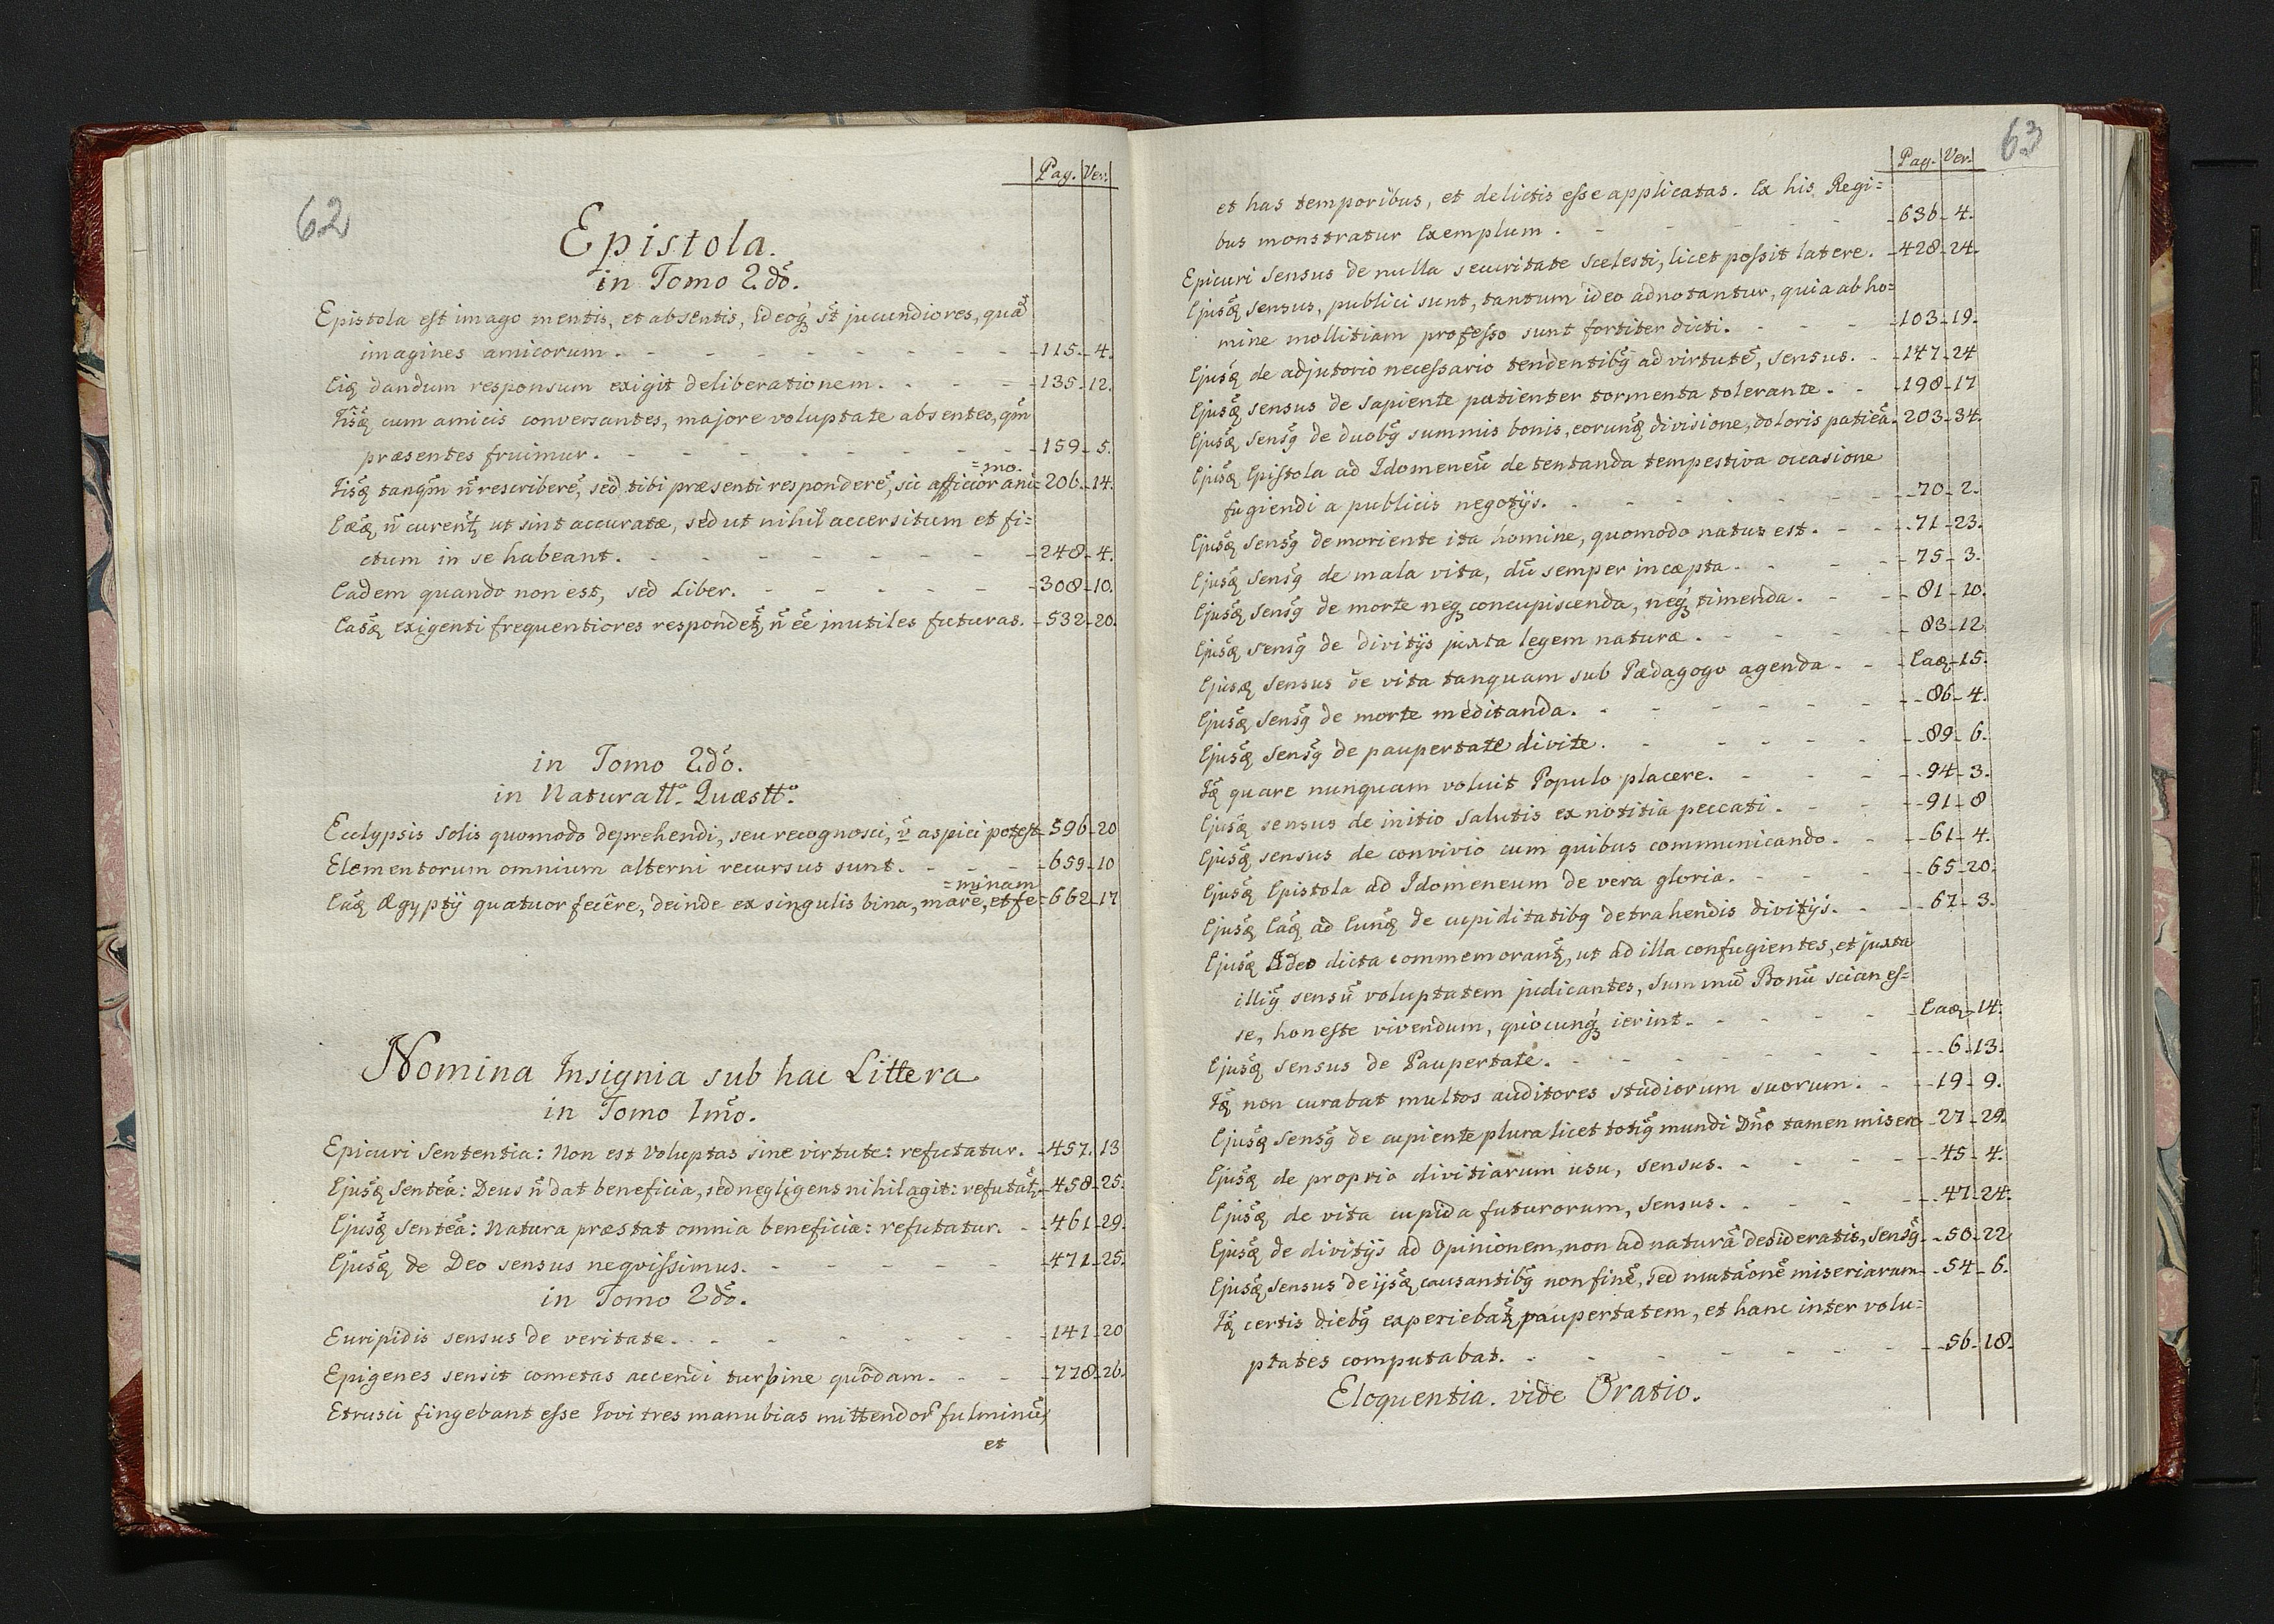 62
Pag. Ver.
Epistola.
in Tomo 2.dõ.
Epistola est imago mentis, et absentis, ideoq̃ sĩ jucundiores, quã
imagines amicorum. - 115. 4.
Eiq̃ dandum responsum exigit deliberationem. - 135. 12.
cum amicis conversantes, majore voluptate absentes, qm̃
præsentes fruimur. - 159. 5.
=mo.
tanqm̃ ñ rescriberẽ, sed tibi præsenti responderẽ, sic afficior ani= 206. 14.
ñ curent, ut sint accuratæ, sed ut nihil accersitum et fi=
ctum in se habeant. - 248. 4.
Eadem quando non est, sed Liber. - 308. 10.
exigenti frequentiores respondet, ñ ẽe inutiles futuras. - 532. 20.
in Tomo 2.dõ.
in Naturatt.̃ Quæstt.̃
Ecclypsis Solis quomodo deprehendi, seu recognosci, ṽ aspici potest - 596. 20
Elementorum omnium alterni recursus sunt. - 659. 10
=minam
Ægyptij quatuor fecêre, deinde ex singulis bina, marẽ, et fe= 662. 17
Nomina Insignia sub hac Littera
in Tomo 1mõ.
Epicuri Sententia: Non est Voluptas sine virtute: refutatur. - 457. 13
Ejusq̃ Senteã: Deus ñ dat beneficia, sed negligens nihil agit: refutat - 458. 25.
Ejusq̃ Senteã: Natura præstat omnia beneficia: refutatur. - 461. 29.
Ejusq̃ de Deo sensus neqvissimus. - 471. 25.
in Tomo 2dõ.
Euripidis sensus de veritate. - 141. 20
Epigenes sensit cometas accendi turbine quôdam. - 778. 26.
Etrusci fingebant esse Jovi tres manubias mittendor̃ fulminũ,
et
63
Pag. Ver.
et has temporibus, et delictis esse applicatas. Ex his Regi=
bus monstratur Exemplum. - 636. 4.
Epicuri Sensus de nulla securitate scelesti, licet possit latere. - 428. 24.
Ejusq̃ Sensus, publici sunt, tantum ideo adnotantur, quia ab ho=
mine mollitiam professo sunt fortiter dicti. - 103. 19.
Ejusq̃ de adjutorio necessario tendentibq̃ ad virtutẽ, sensus. - 147. 24
Ejusq̃ sensus de Sapiente patienter tormenta tolerante. - 198. 17
Ejusq̃ Sensq̃ de duobq̃ summis bonis, eorunq̃ divisione, doloris patieã. 203. 34.
Ejusq̃ Epistola ad Idomeneũ de tentanda tempestiva occasione
fugiendi a publicis negotijs. - 70. 2.
Ejusq̃ Sensq̃ de moriente ita homine, quomodo natus est. - 71. 23.
Ejusq̃ Sensq̃ de mala vita, dũ semper incæpta. - 75. 3.
Ejusq̃ Sensq̃ de morte neq̃ concupiscenda, neq̃ timenda. - 81. 10.
Ejusq̃ Sensq̃ de divitijs juxta legem naturæ. - 83. 12
Ejusq̃ Sensus de vita tanquam sub Pædagogo agenda. - Eaq̃ 15.
Ejusq̃ Sensq̃ de morte meditanda. - 86. 4.
Ejusq̃ Sensq̃ de paupertate divite. - 89. 6.
Iq̃ quare nunquam voluit Populo placere. - 94. 3.
Ejusq̃ sensus de initio Salutis ex notitia peccati. - 91. 8
Ejusq̃ sensus de convivio cum quibus communicando. - 61. 4.
Ejusq̃ Epistola ad Idomeneum de vera gloria. - 65. 20.
Ejusq̃ Eaq̃ ad Eunq̃ de cupiditatibq̃ detrahendis divitijs. - 67. 3.
Ejusq̃ Ideo dicta commemorant, ut ad illa confugientes, et juxta
illiq̃ sensũ voluptatem judicantes, Summũ Bonũ sciãn es=
se, honeste vivendum, quocunq̃ ierint. - Eaq̃ 14.
Ejusq̃ Sensus de Paupertate. - 6. 13.
Iq̃ non curabat multos auditores studiorum suorum. - 19. 9.
Ejusq̃ Sensq̃ de cupiente plura licet totiq̃ mundi Dño tamen misero - 27. 29.
Ejusq̃ de proprio divitiarum usu, sensus. - 45. 4.
Ejusq̃ de vita cupida futurorum, sensus. - 47. 24.
Ejusq̃ de divitijs ad Opinionem, non ad naturã desideratis, Sensq̃ - 50. 22
Ejusq̃ Sensus de ijsq̃ causantibq̃ non finẽ, sed mutãonẽ miseriarum - 54. 6.
Iq̃ certis diebq̃ experiebat paupertatem, et hanc inter volu=
ptates computabat. - 56. 18.
Eloquentia. vide Oratio.